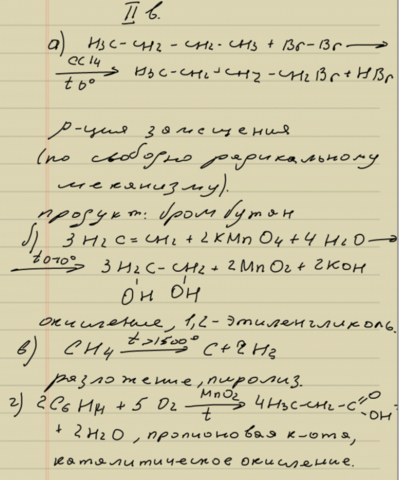 II в.
а) H3C-CH2-CH2-CH3 + Br-Br ⟶
CCl4 t° ⟶ H3C-CH2-CH2-CH2Br + HBr
р-ция замещения
(по свободно радикальному
механизму).
продукт: бромбутан
б) 3H2C=CH2 + 2KMnO4 + 4H2O ⟶
t 0-10° ⟶ 3H2C-CH2 + 2MnO2 + 2KOH
OH OH
окисление, 1,2-этиленгликоль.
в) CH4 t>1500° ⟶ C + 2H2
разложение, пиролиз.
г) 2C6H14 + 5O2 MnO2 t ⟶ 4H3C-CH2-C=O -OH
+ 2H2O, пропионовая к-та,
каталитическое окисление.